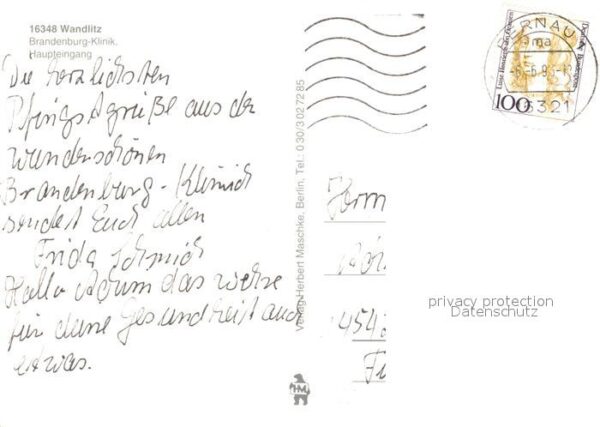 16348 Wandlitz
Brandenburg-Klinik.
Haupteingang
Die herzlichsten
Pfingstgrüße aus der
wunderschönen
Brandenburg-Klinick
sendet Euch allen
Frida Schmich
Hallo Achim das wehre
für deine Gesundheit auch
etwas.
Verlag Herbert Maschke, Berlin, Tel.: 030/3027285
HM
BERNAU
100
16321
Deutsche Bundespost
Herrn
privacy protection
Datenschutz
1454